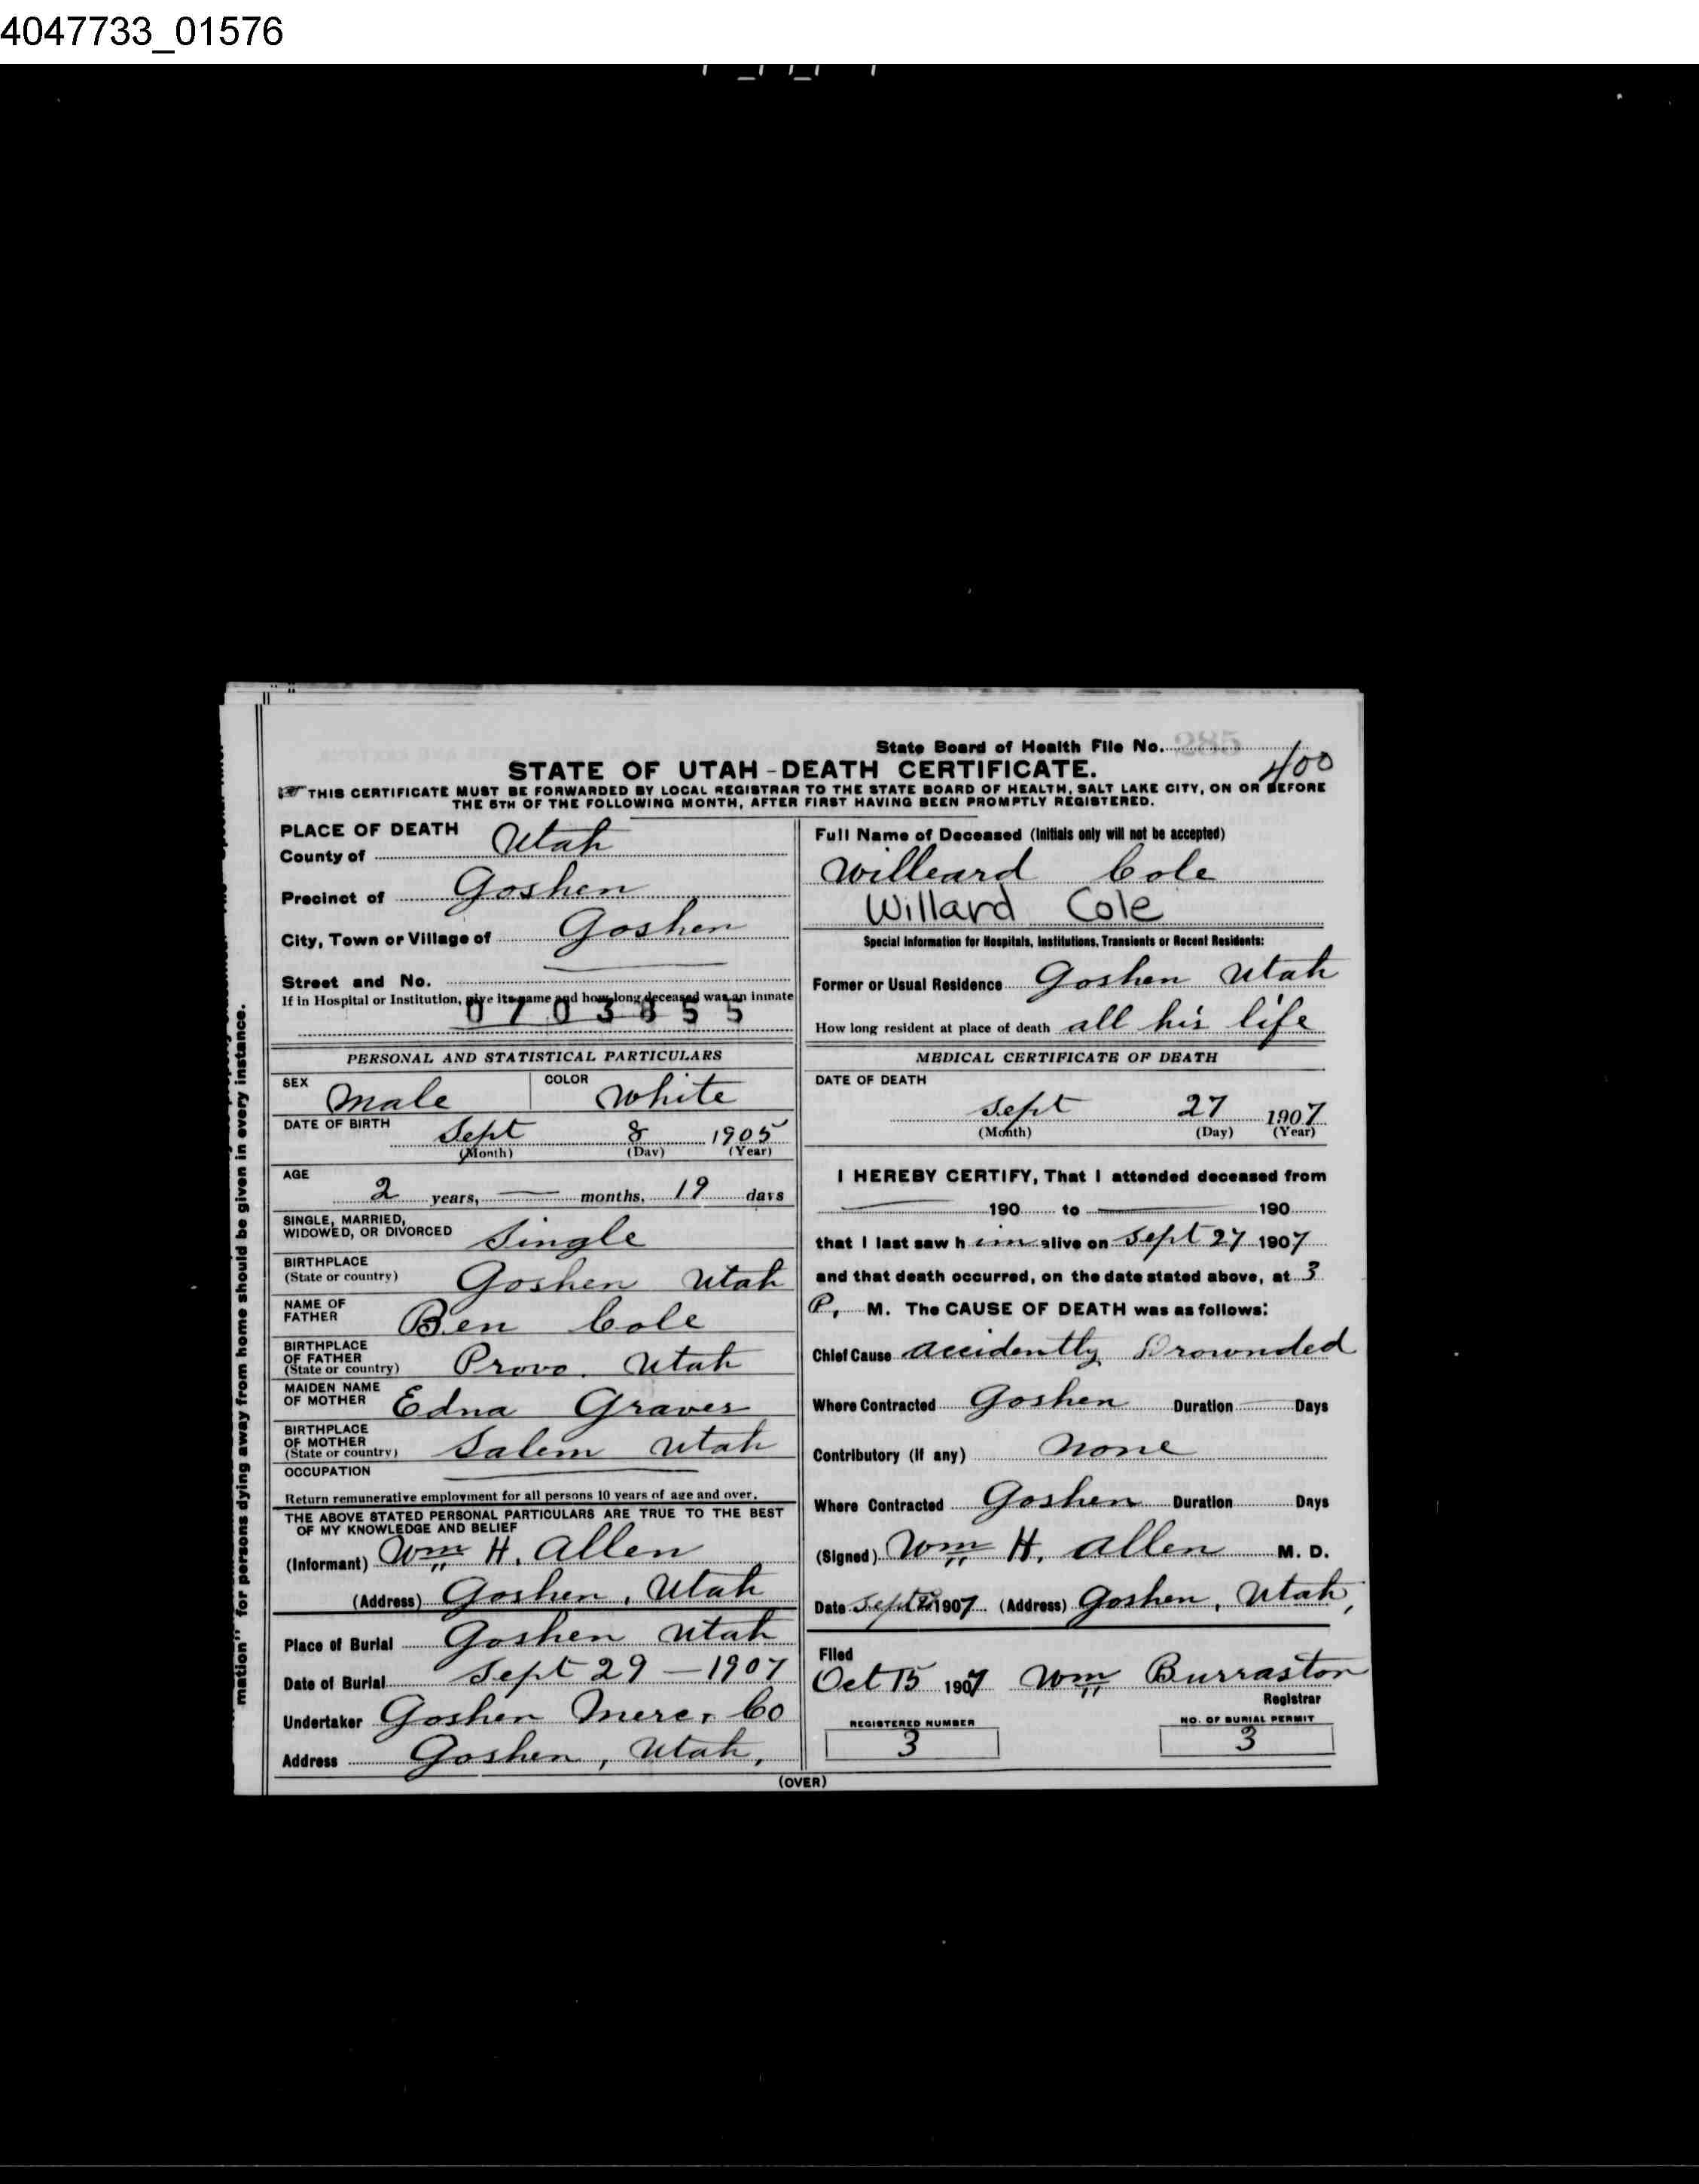 4047733_01576
State Board of Health File No. 285
400
STATE OF UTAH - DEATH CERTIFICATE.
THIS CERTIFICATE MUST BE FORWARDED BY LOCAL REGISTRAR TO THE STATE BOARD OF HEALTH, SALT LAKE CITY, ON OR BEFORE
THE 5TH OF THE FOLLOWING MONTH, AFTER FIRST HAVING BEEN PROMPTLY REGISTERED.
PLACE OF DEATH
County of Utah
Precinct of Goshen
City, Town or Village of Goshen
Street and No.
If in Hospital or Institution, give its name and how long deceased was an inmate
0703855
PERSONAL AND STATISTICAL PARTICULARS
SEX Male COLOR White
DATE OF BIRTH Sept 8 1905
(Month) (Day) (Year)
AGE 2 years, — months, 19 days
SINGLE, MARRIED,
WIDOWED, OR DIVORCED Single
BIRTHPLACE
(State or country) Goshen Utah
NAME OF
FATHER Ben Cole
BIRTHPLACE
OF FATHER
(State or country) Provo. Utah
MAIDEN NAME
OF MOTHER Edna Graves
BIRTHPLACE
OF MOTHER
(State or country) Salem Utah
OCCUPATION
Return remunerative employment for all persons 10 years of age and over.
THE ABOVE STATED PERSONAL PARTICULARS ARE TRUE TO THE BEST
OF MY KNOWLEDGE AND BELIEF
(Informant) Wm H. Allen
(Address) Goshen, Utah
Place of Burial Goshen Utah
Date of Burial Sept 29 — 1907
Undertaker Goshen Merc. Co
Address Goshen, Utah,
Full Name of Deceased (Initials only will not be accepted)
Willeard Cole
Willard Cole
Special Information for Hospitals, Institutions, Transients or Recent Residents:
Former or Usual Residence Goshen Utah
How long resident at place of death all his life
MEDICAL CERTIFICATE OF DEATH
DATE OF DEATH
Sept 27 1907
(Month) (Day) (Year)
I HEREBY CERTIFY, That I attended deceased from
— 190 to — 190
that I last saw h im alive on Sept 27 1907
and that death occurred, on the date stated above, at 3
P. M. The CAUSE OF DEATH was as follows:
Chief Cause accidently Drownded
Where Contracted Goshen Duration — Days
Contributory (if any) None
Where Contracted Goshen Duration Days
(Signed) Wm H. Allen M. D.
Date Sept 1907 (Address) Goshen, Utah,
Filed
Oct 15 1907 Wm Burraston
Registrar
REGISTERED NUMBER
3
NO. OF BURIAL PERMIT
3
(OVER)
mation" for persons dying away from home should be given in every instance.